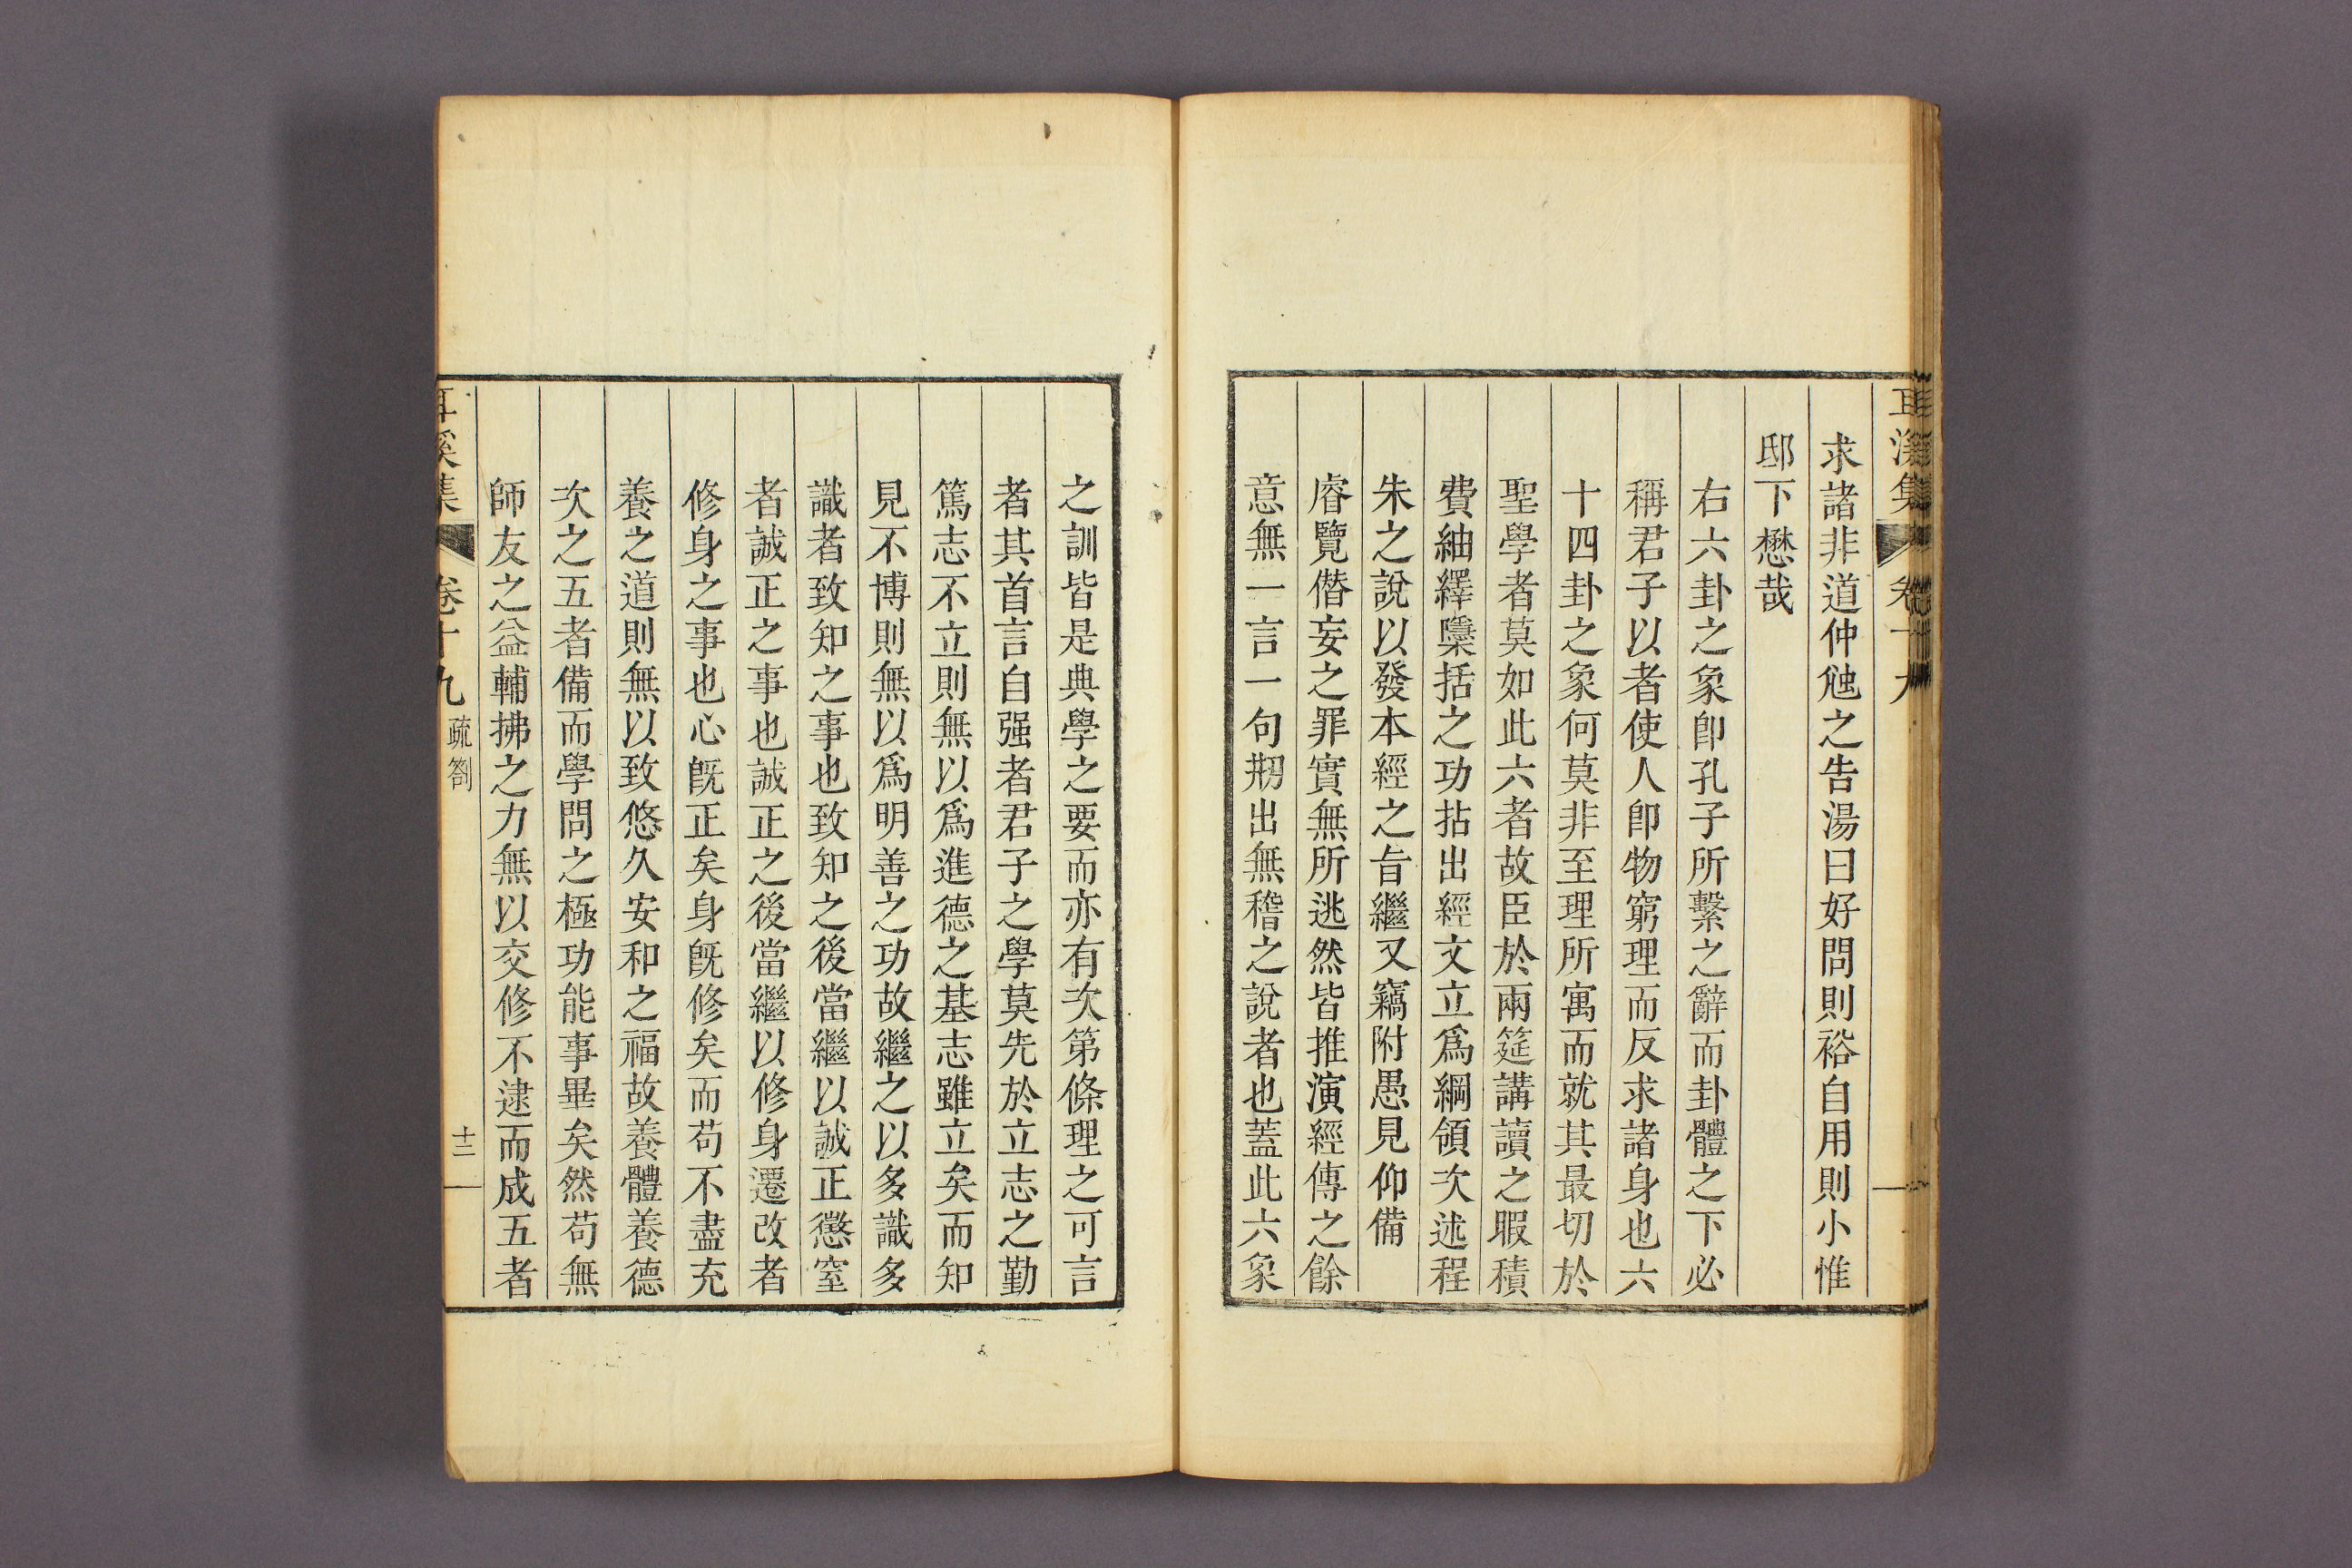 耳溪集 卷十九
求諸非道仲虺之告湯曰好問則裕自用則小惟
邸下懋哉
右六卦之象卽孔子所繫之辭而卦體之下必
稱君子以者使人卽物窮理而反求諸身也六
十四卦之象何莫非至理所寓而就其最切於
聖學者莫如此六者故臣於兩筵講讀之暇積
費紬繹檃括之功拈出經文立爲綱領次述程
朱之說以發本經之旨繼又竊附愚見仰備
睿覽僭妄之罪實無所逃然皆推演經傳之餘
意無一言一句刱出無稽之說者也蓋此六象
之訓皆是典學之要而亦有次第條理之可言
者其首言自强者君子之學莫先於立志之勤
篤志不立則無以爲進德之基志雖立矣而知
見不博則無以爲明善之功故繼之以多識多
識者致知之事也致知之後當繼以誠正懲窒
者誠正之事也誠正之後當繼以修身遷改者
修身之事也心旣正矣身旣修矣而苟不盡充
養之道則無以致悠久安和之福故養體養德
次之五者備而學問之極功能事畢矣然苟無
師友之益輔拂之力無以交修不逮而成五者
耳溪集 卷十九 疏箚 十三